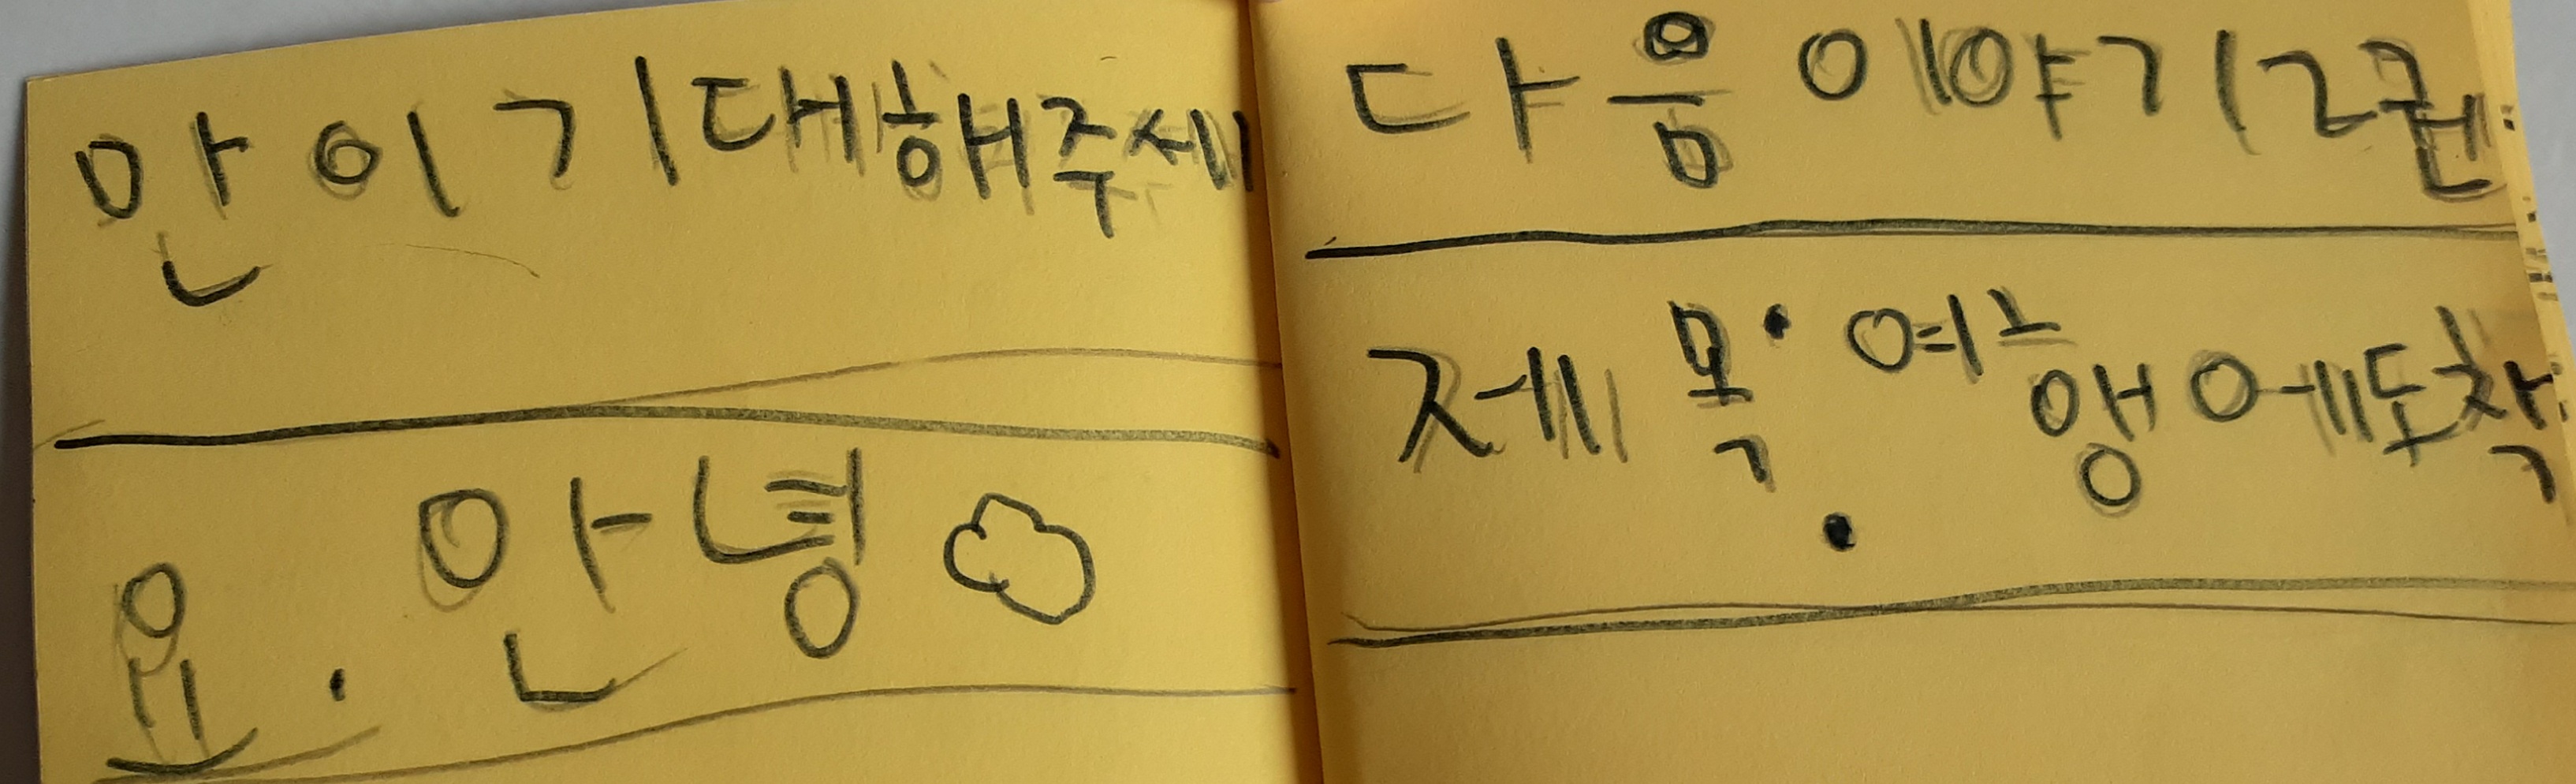 만이기대해주세
요. 안녕
다음이야기2권
제목: 여행에도착